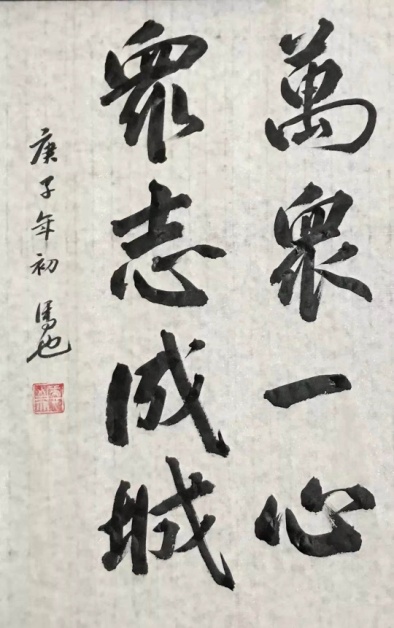 萬衆一心
衆志成城
庚子年初 馮也